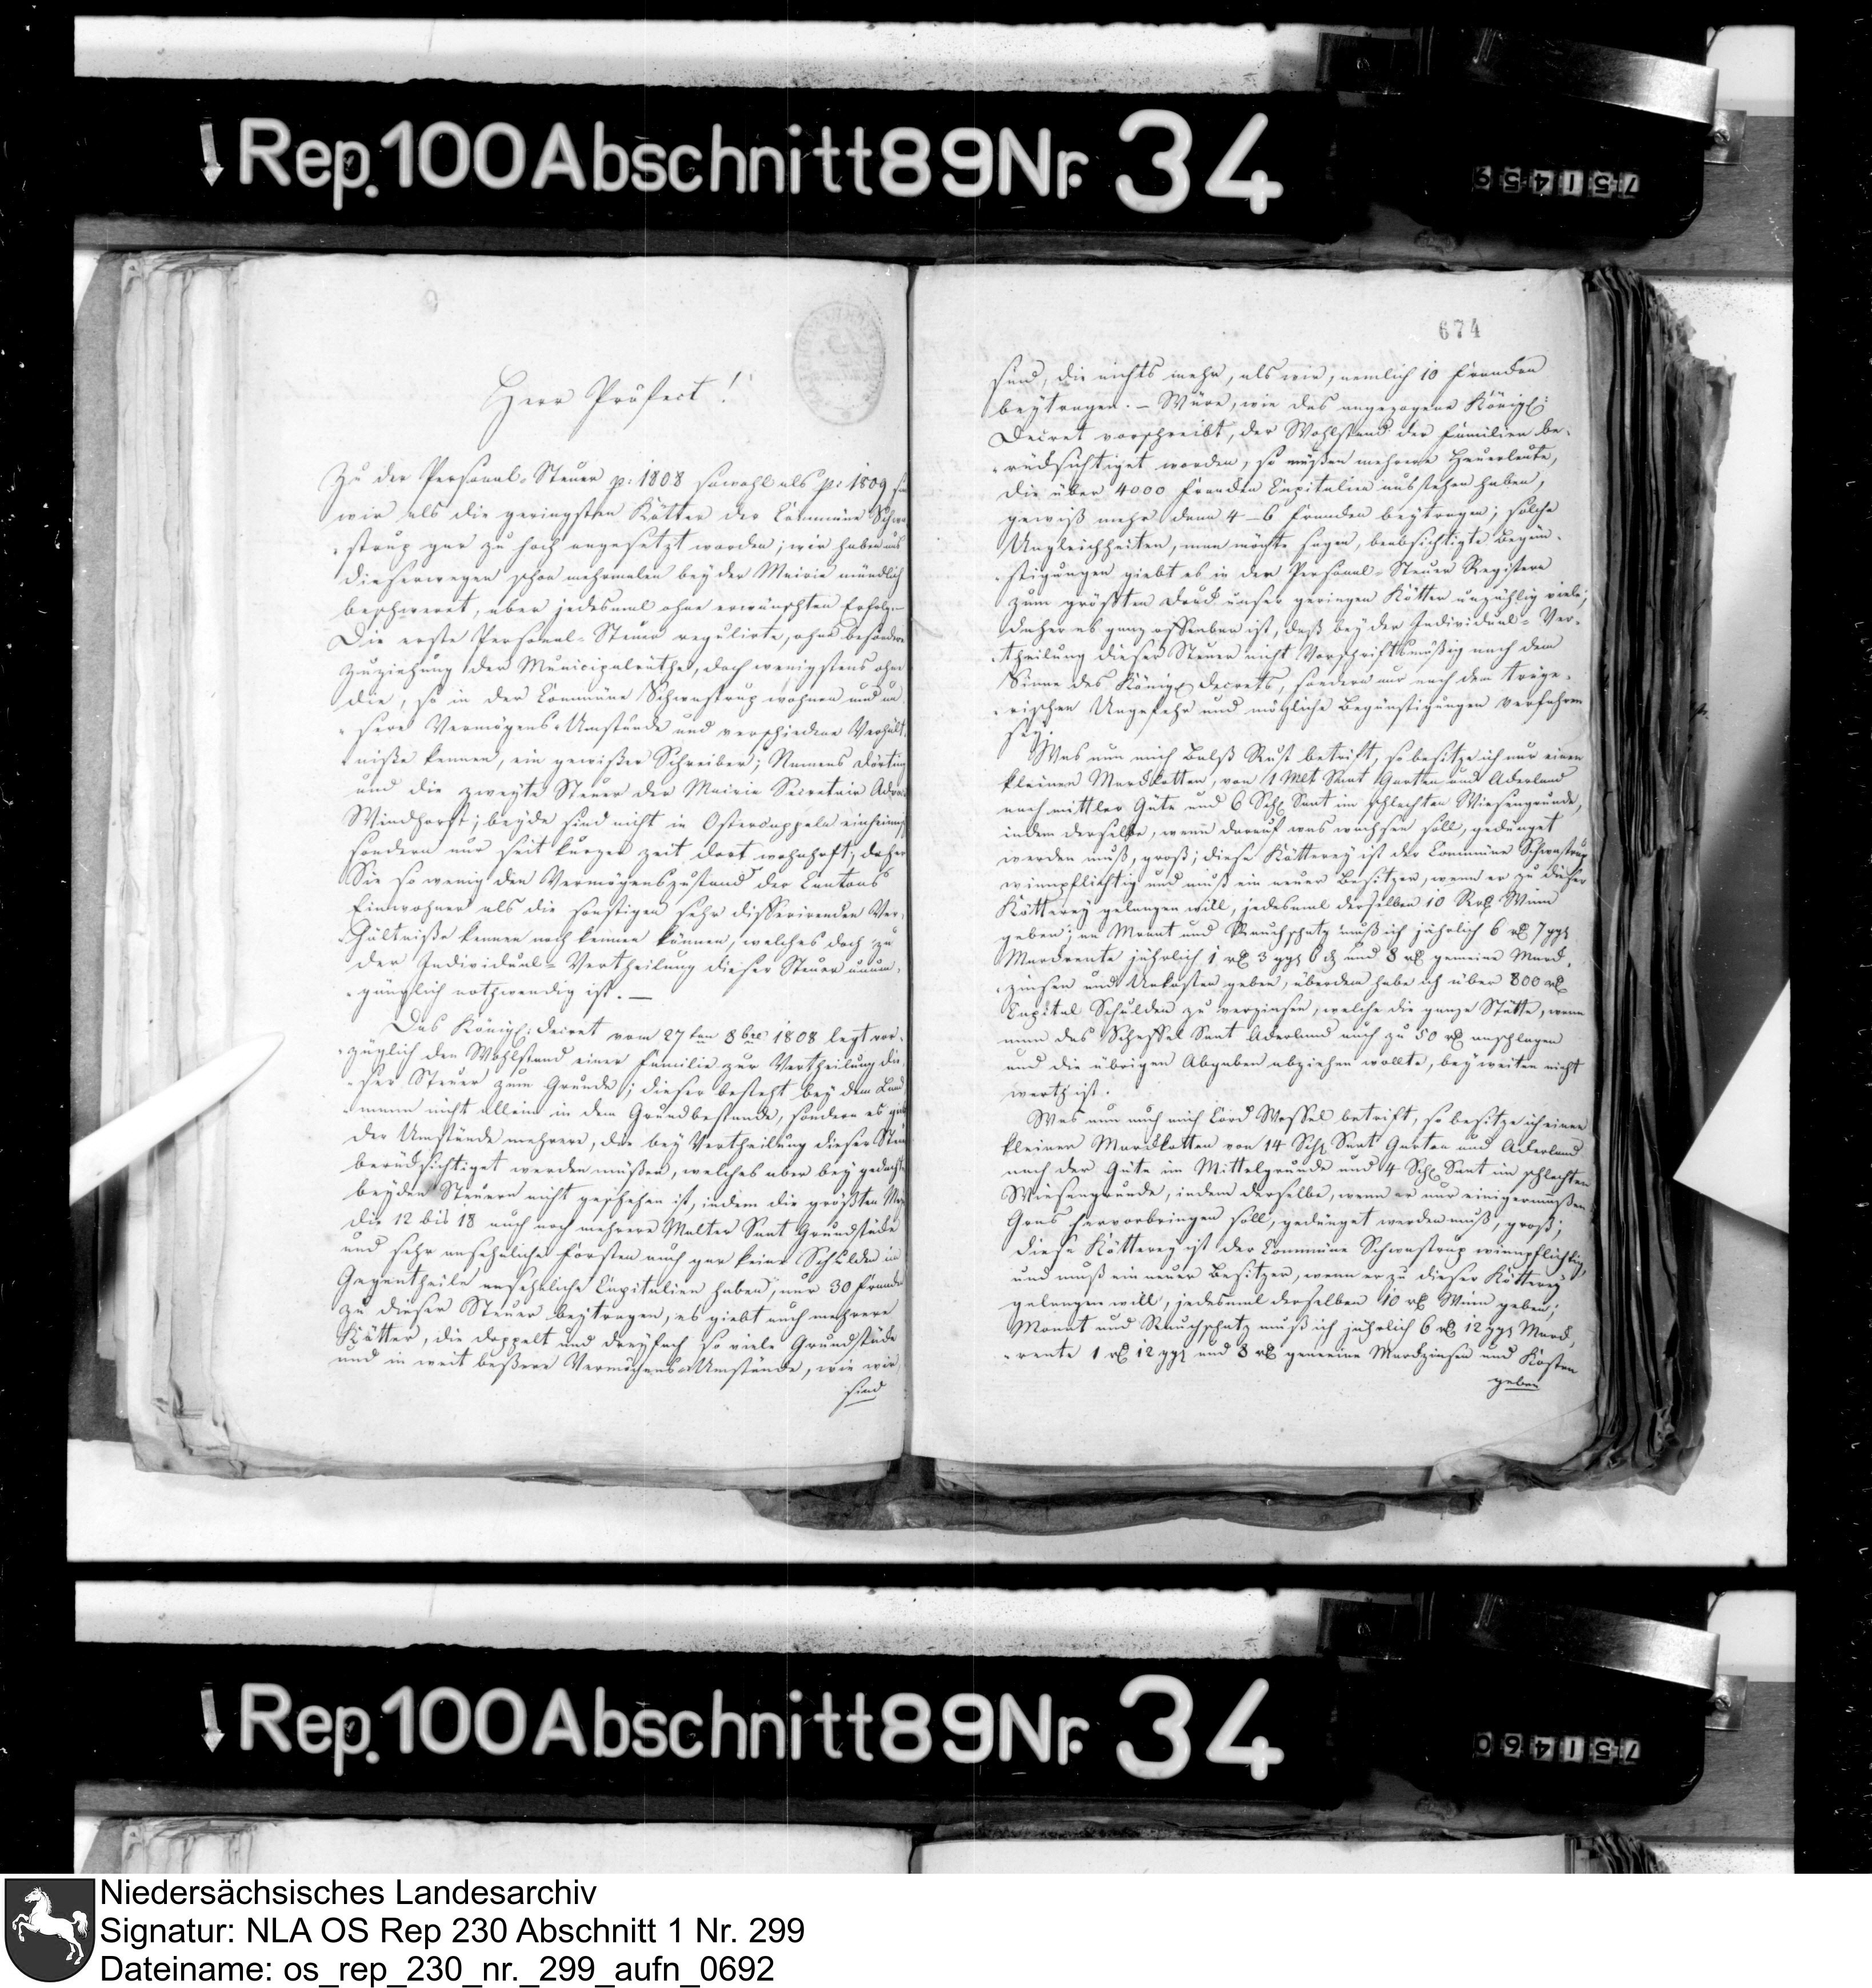 Rep. 100 Abschnitt 89 Nr. 34
751459
674
Herr Präfect!
Zu der Personal-Steuer p: 1808 sowohl als p: 1809
wir als die geringsten Kötter der Commüne Schwa
strup gar zu hoch angesetzt worden; wir haben uns
dieserwegen schon mehrmalen bey der Mairie mündlich
beschweret, aber jedesmal ohne erwünschten Erfolg.
Die erste Personal-Steuer regulirte, ohne besondere
Zuziehung der Municipalräthe, doch wenigstens ohne
die, so in der Commüne Schwastrup wohnen und un
sere Vermögens-Umstände und verschiedene Verhält
niße kennen, ein gewißer Schreiber, Namens
und die zweyte Steuer der Mairie Secretair
Windhorst; beyde sind nicht in Ostercappeln
sondern nur seit kurzer Zeit dort wohnhaft, daher
Sie so wenig den Vermögenszustand der Cantons
Einwohner als die sonstigen sehr differirenden Ver-
hältniße kennen noch kennen können, welches doch zu
der Individual-Vertheilung dieser Steuer unum-
gänglich nothwendig ist. —
Das Königl: Decret vom 27ten 8bre 1808 legt vor-
züglich den Wohlstand einer Familie zur Vertheilung die-
ser Steuer zum Grunde; dieser besteht bey dem Land
mann nicht allein in dem Grundbestande, sondern es
der Umstände mehrere, die bey Vertheilung dieser
berücksichtiget werden müßen, welches aber bey
beyden Steuern nicht geschehen ist, indem die größten
die 12 bis 18 auch noch mehrere Malter Saat Grundstücke
und sehr ansehnliche Forsten auch gar keine Schulden im
Gegentheile ansehnliche Capitalien haben, nur 30 Franken
zu dieser Steuer beytragen, es giebt auch mehrere
Kötter, die doppelt und dreyfach so viele Grundstücke
und in weit beßere Vermögens-Umstände, wie wir
sind
sind, die nichts mehr, als wir, nemlich 10 Franken
beytragen. — Wäre, wie das angezogene Königl:
Decret vorschreibt, der Wohlstand der Familien be-
rücksichtiget worden, so müßen mehrere Heuerleute,
die über 4000 Franken Capitalien ausstehen haben,
gewiß mehr denn 4–6 Franken beytragen; solche
Ungleichheiten, man mögte sagen, beabsichtigte Begün-
stigungen giebt es in der Personal-Steuer Registern
zum größten Druck unser geringen Kötter unzählig viele;
daher es ganz offenbar ist, daß bey der Individual-Ver-
theilung dieser Steuer nicht Vorschriftsmäßig nach dem
Sinne des Königl Decrets, sondern nur nach dem trüge-
rischen Ungefehr und mögliche Begünstigungen verfahren
sey.
Was nun mich Rust betrift, so besitze ich nur einen
kleinen Marckkotten, von 1 Mlt Saat Garten und Ackerland
nach mittler Güte und 6 Sch Saat im schlechten Wiesengrunde,
indem derselbe, wenn darauf was wachsen soll, gedünget
werden muß, groß; diese Kötterey ist der Commüne Schwastrup
winnpflichtig und muß ein neuer Besitzer, wenn er zu dieser
Kötterey gelangen will, jedesmal derselben 10 Rthl Winn
geben; an Monat und Rauchschatz muß ich jährlich 6 rthl 7 ggr
Marckrente jährlich 1 rthl 3 ggr 6 d und 8 rthl gemeine Marck-
zinsen und Unkosten geben, überdem habe ich über 800 rthl
Capital Schulden zu verzinsen, welche die ganze Stätte, wenn
man das Scheffel Saat Ackerland auch zu 50 rthl anschlagen
und die übrigen Abgaben abziehen wollte, bey weiten nicht
werth ist.
Was nun auch mich Cord Wessel betrift, so besitze ich einen
kleinen Marckkotten von 14 Sch Saat Garten und Ackerland
nach der Güte im Mittelgrunde und 4 Sch Saat im schlechten
Wiesengrunde, indem derselbe, wenn er nur einigermaßen
Gras hervorbringen soll, gedünget werden muß, groß;
diese Kötterey ist der Commüne Schwastrup winnpflichtig,
und muß ein neuer Besitzer, wenn er zu dieser Kötterey
gelangen will, jedesmal derselben 10 rthl Winn geben;
Monat und Rauchschatz muß ich jährlich 6 rthl 12 ggr Marck-
rente 1 rthl 12 ggr und 8 rthl gemeine Marckzinsen und Kosten
geben
Rep. 100 Abschnitt 89 Nr. 34
751460
Niedersächsisches Landesarchiv
Signatur: NLA OS Rep 230 Abschnitt 1 Nr. 299
Dateiname: os_rep_230_nr._299_aufn_0692